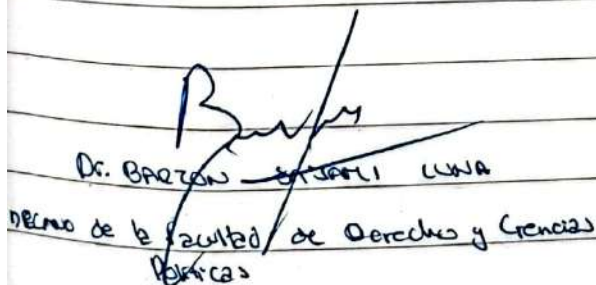 Dr. BARZON SAJAMI LUNA
DECANO de la Facultad de Derecho y Ciencias
Políticas